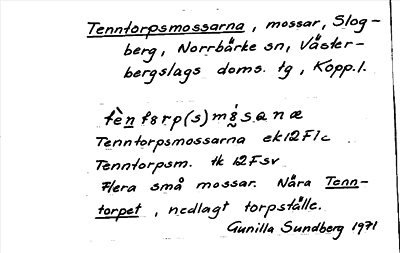 Tenntorpsmossarna, mossar, Slog-
berg, Norrbärke sn, Väster-
bergslags doms. tg, Kopp.l.
tèntɤrp(s)mɤ́sanæ
Tenntorpsmossarna ek 12F1c
Tenntorpsm. tk 12Fsv
Flera små mossar. Nära Tenn-
torpet, nedlagt torpställe.
Gunilla Sundberg 1971